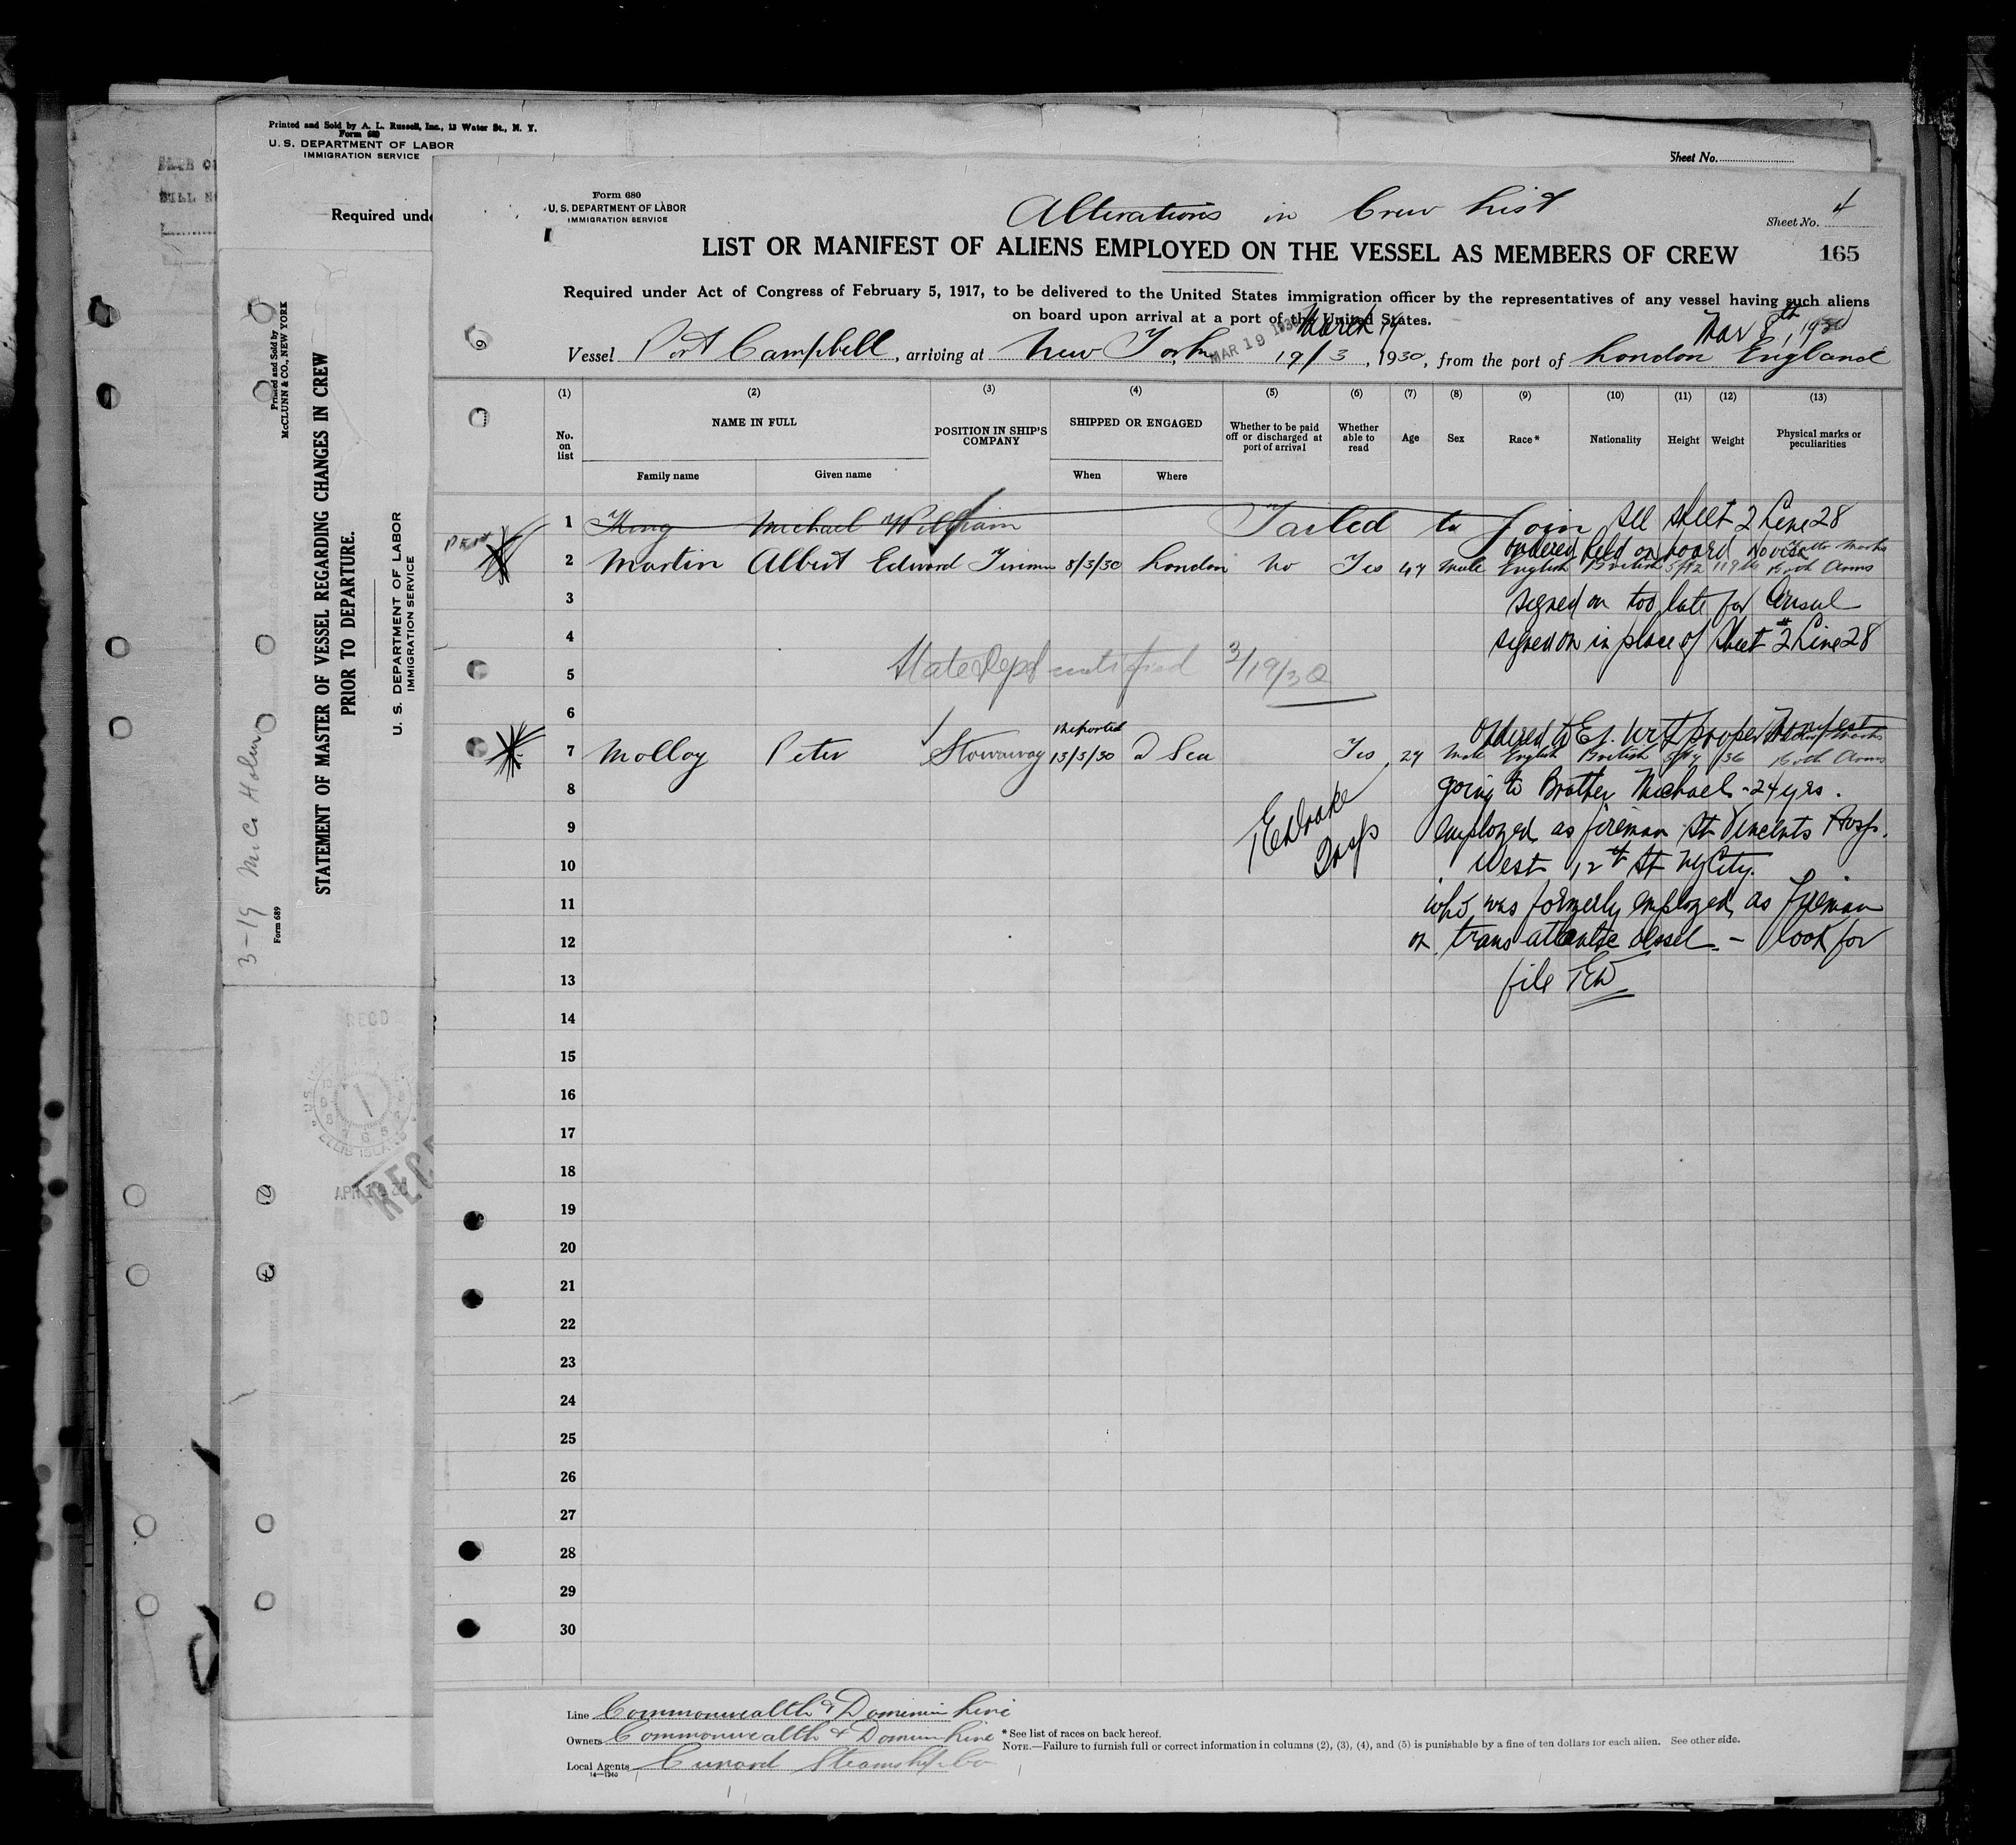 Printed and Sold by A. L. Russell, Inc., 13 Water St., N. Y.
Form 680
U. S. DEPARTMENT OF LABOR
IMMIGRATION SERVICE
Sheet No.
Required unde
Printed and Sold by
McCLUNN & CO., NEW YORK
STATEMENT OF MASTER OF VESSEL REGARDING CHANGES IN CREW
PRIOR TO DEPARTURE.
U. S. DEPARTMENT OF LABOR
IMMIGRATION SERVICE
Form 689
3-19
RECD
ELLIS ISLAND
Form 680
U. S. DEPARTMENT OF LABOR
IMMIGRATION SERVICE
Alterations in Crew List
Sheet No. 4
LIST OR MANIFEST OF ALIENS EMPLOYED ON THE VESSEL AS MEMBERS OF CREW
165
Required under Act of Congress of February 5, 1917, to be delivered to the United States immigration officer by the representatives of any vessel having such aliens
on board upon arrival at a port of the United States.
March 19 Mar 8th, 1930
Vessel Port Campbell, arriving at New York MAR 19 1930 19/3, 1930, from the port of London England
(1) (2) (3) (4) (5) (6) (7) (8) (9) (10) (11) (12) (13)
No. on list
NAME IN FULL
Family name Given name
POSITION IN SHIP'S COMPANY
SHIPPED OR ENGAGED
When Where
Whether to be paid off or discharged at port of arrival
Whether able to read
Age
Sex
Race*
Nationality
Height
Weight
Physical marks or peculiarities
1 King Michael William Failed to Join See Sheet 2 Line 28
ordered held on board no visa
2 Martin Albert Edward Fireman 8/3/30 London No Yes 47 Male English British Tattoo Marks Both Arms
3 signed on too late for Consul
4 signed on in place of Sheet #2 Line 28
5 State Dept notified 3/19/30
6
Ordered to E.I. Manifest
7 Molloy Peter Stowaway Reported 13/3/30 @ Sea Yes 27 Male English British 136 Both Arms
8 going to Brother Michael - 24 yrs.
9 employed as fireman St Vincents Hosp.
10 West 12th St NY City.
11 who was formerly employed as fireman
12 on trans atlantic vessel - look for
13 file TED
TEDrake
Insp
14
15
16
17
18
19
20
21
22
23
24
25
26
27
28
29
30
Line Commonwealth & Dominion Line
Owners Commonwealth & Dominion Line
Local Agents Cunard Steamship Co
* See list of races on back hereof.
NOTE.—Failure to furnish full or correct information in columns (2), (3), (4), and (5) is punishable by a fine of ten dollars for each alien. See other side.